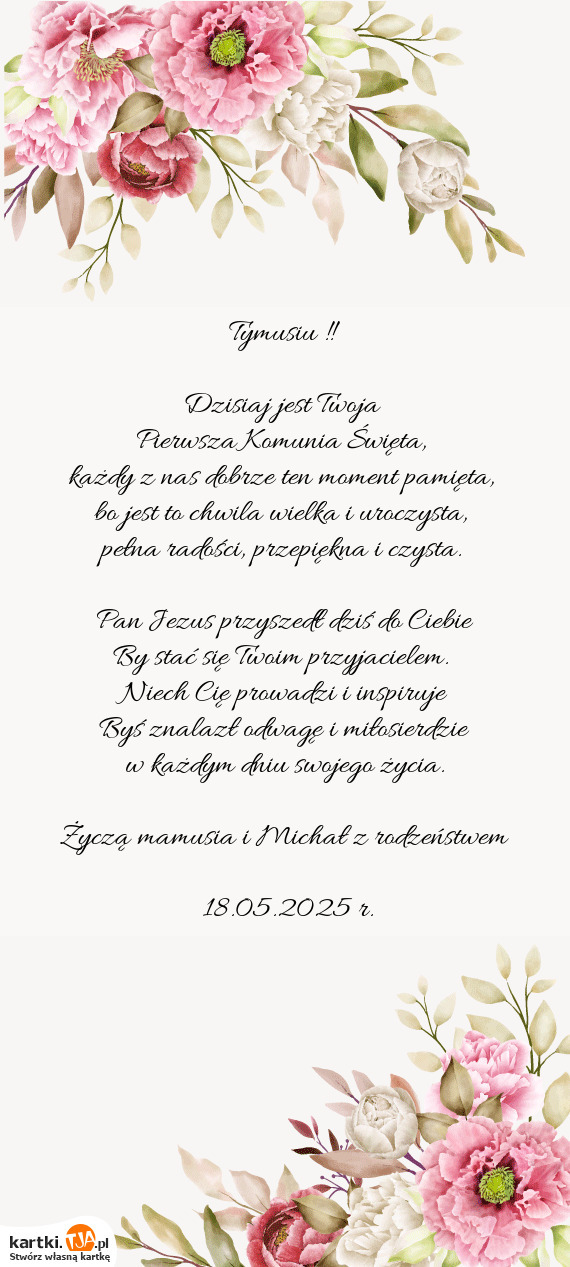 Tymusiu !!
Dzisiaj jest Twoja
Pierwsza Komunia Święta,
każdy z nas dobrze ten moment pamięta,
bo jest to chwila wielka i uroczysta,
pełna radości, przepiękna i czysta.
Pan Jezus przyszedł dziś do Ciebie
By stać się Twoim przyjacielem.
Niech Cię prowadzi i inspiruje
Byś znalazł odwagę i miłosierdzie
w każdym dniu swojego życia.
Życzą mamusia i Michał z rodzeństwem
18.05.2025 r.
kartki.TJA.pl
Stwórz własną kartkę